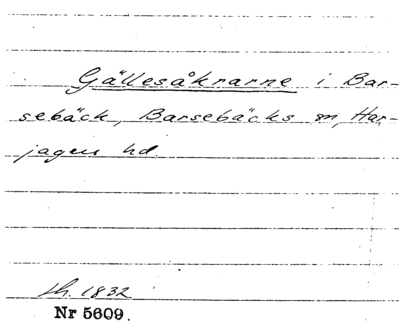 Gällesåkrarne i Bar-
sebäck, Barsebäcks sn, Har-
jagers hd.
sh. 1832
Nr 5609.